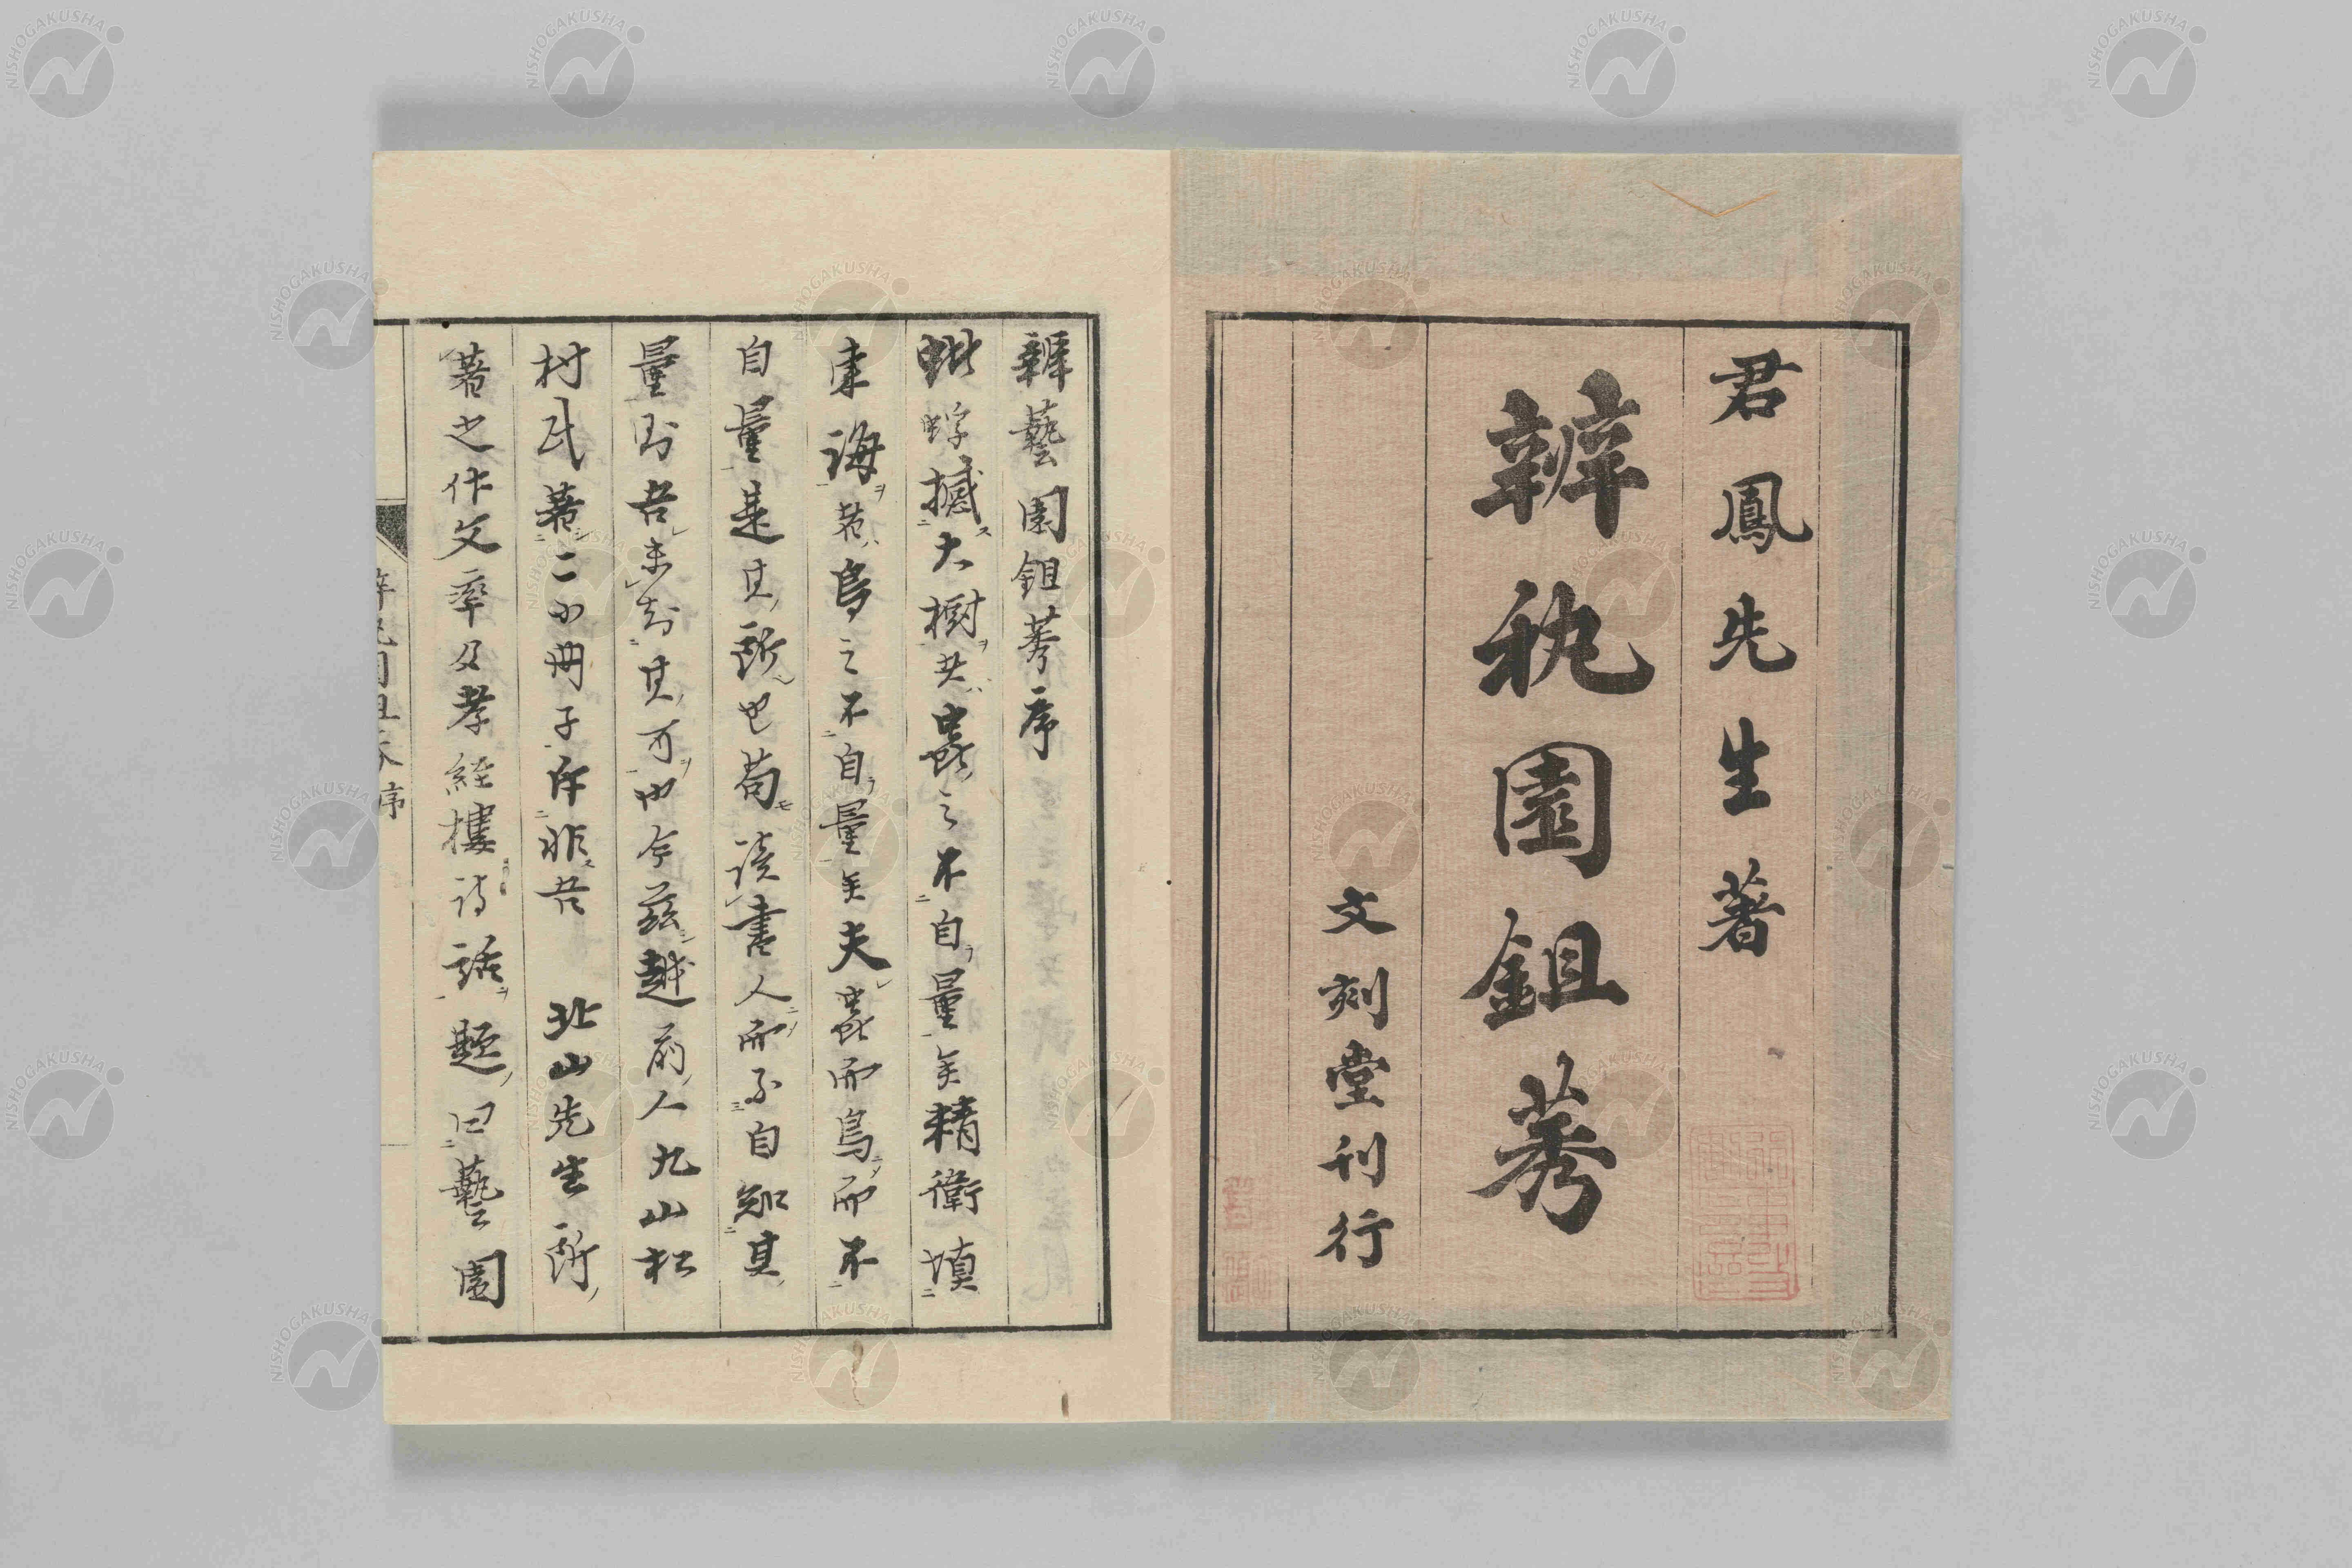 君鳳先生著
辨秇園鉏莠
文刻堂刊行
辨藝園鉏莠序
蚍蜉撼大樹其蟲之不自量矣精衛塡
東海其鳥之不自量矣夫蟲而鳥而不
自量是其所也苟讀書人而不自知其
量則吾未知其可也今茲越前人九山松
村氏著二小冊子斥非吾 北山先生所
著之作文率及孝經樓詩話題曰藝園
序
NISHOGAKUSHA